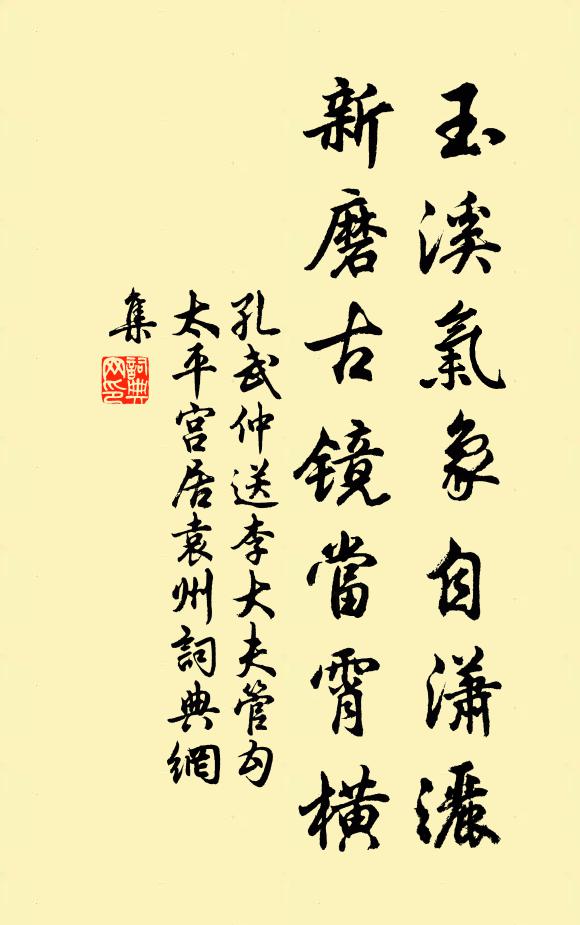 玉溪氣象自瀟灑
新磨古鏡當霄橫
孔武仲送李大夫管勾
太平宮居袁州詞典網
集
詞典
网印